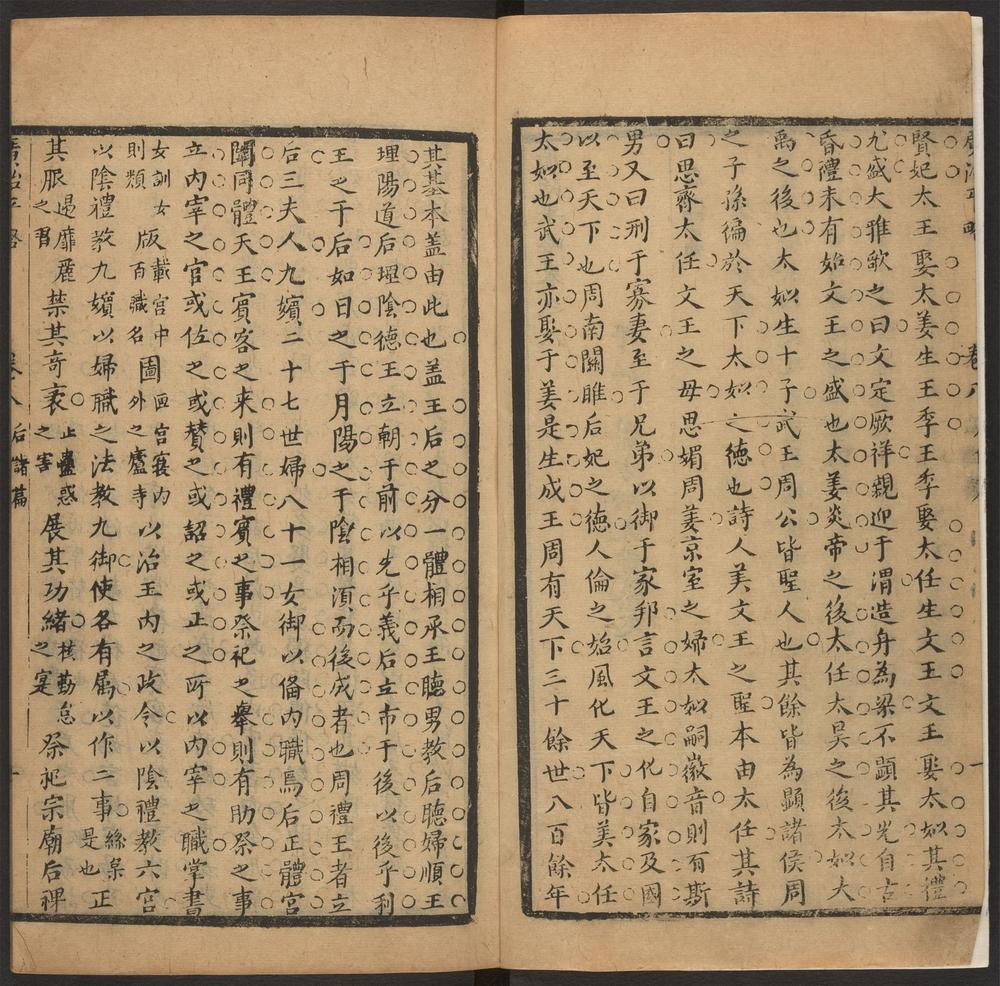 賢妃太王娶太姜生王季王季娶太任生文王文王娶太姒其禮
尤盛大雅歌之曰文定厥祥親迎于渭造舟為梁不顯其光自古
昏禮未有如文王之盛也太姜炎帝之後太任太昊之後太姒大
禹之後也太姒生十子武王周公皆聖人也其餘皆為顯諸侯周
之子孫徧於天下太姒之德也詩人美文王之聖本由太任其詩
曰思齊太任文王之母思媚周姜京室之婦太姒嗣徽音則百斯
男又曰刑于寡妻至于兄弟以御于家邦言文王之化自家及國
以至天下也周南關雎后妃之德人倫之始風化天下皆美太任
太姒也武王亦娶于姜是生成王周有天下三十餘世八百餘年
其基本盖由此也盖王后之分一體相承王聽男教后聽婦順王
理陽道后理陰德王立朝于前以先乎義后立市于後以後乎利
王之于后如日之于月陽之于陰相湏而後成者也周禮王者立
后三夫人九嬪二十七世婦八十一女御以俻内職焉后正體宮
闈同體天王賓客之来則有禮賓之事祭祀之舉則有助祭之事
立内宰之官或佐之或賛之或詔之或正之所以内宰之職掌書
女訓女則類版載宮中百職名圖畫宮寝内外之廬寺以治王内之政令以陰禮教六宮
以陰禮教九嬪以婦職之法教九御使各有属以作二事絲枲是也正
其服遏靡麗之習禁其奇衺止蠱惑之害展其功緒核勤怠之寔祭祀宗廟后禆
卷八
后諸篇